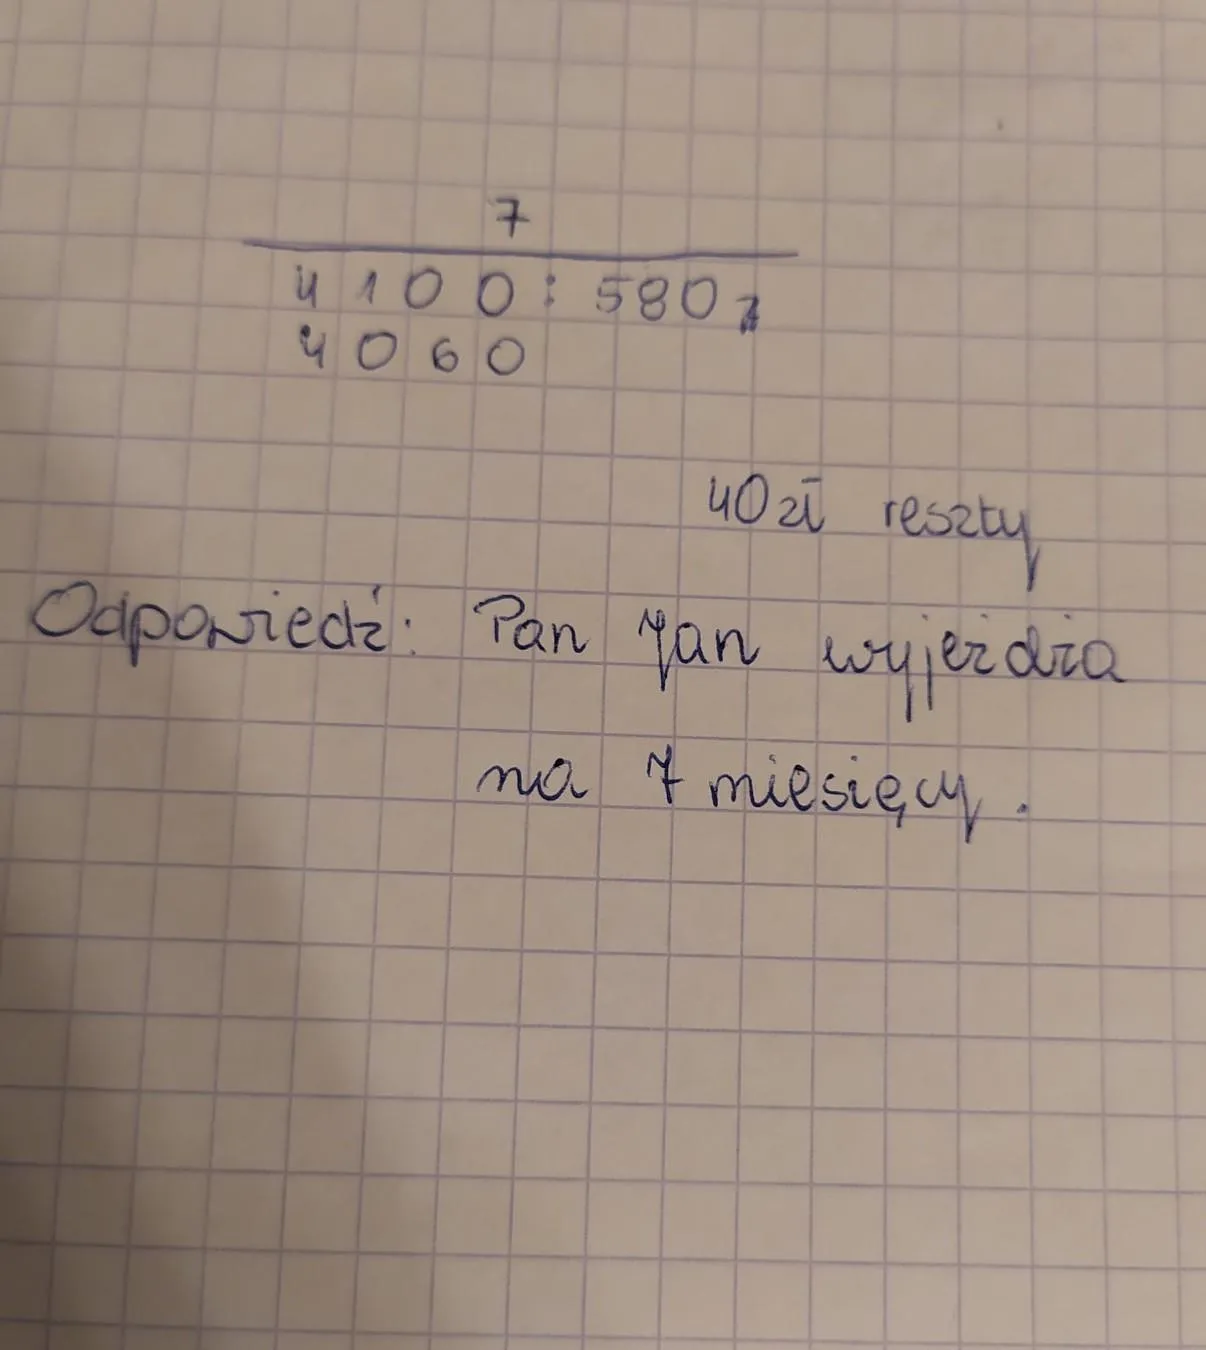 7
4100:580
4060
40 zł reszty
Odpowiedź: Pan Jan wyjeżdża
na 7 miesięcy.